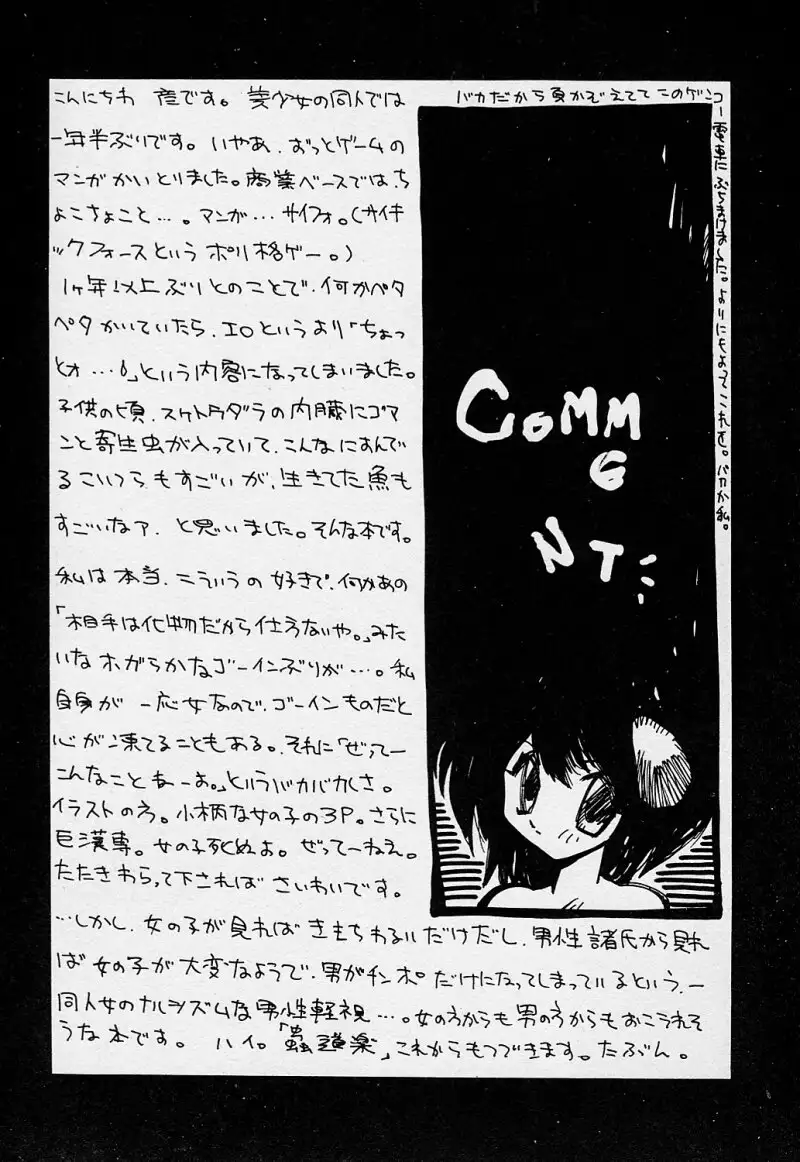 こんにちわ 産です。美少女の同人では
一年半ぶりです。いやあ、ずっとゲームの
マンガかいとりました。商業ベースではち
ょこちょこと…。マンガ…サイフォ。(サイキ
ックフォースという ポリ格ゲー。)
1ヶ年以上ぶりとのことで、何かペタ
ペタかいていたら、エロというより「ちょっ
とォ…6」という内容になってしまいました。
子供の頃、スケトウダラの内臓にゴマ
ンと寄生虫が入っていて、こんなにあんで
るこいつらもすごいが、生きてた魚も
すごいなァ、と思いました。そんな本です。
私は本当、こういうの好きで、何かあの
「相手は化物だから仕方ないや。」みた
いなホガらかなゴーインぶりが…。私
自身が 一応女なので、ゴーインものだと
心が凍てることもある。それに「ぜってー
こんなことねーよ。」というバカバカしさ。
イラストの方。小柄な女の子の3P。さらに
巨漢専。女の子死ぬよ。ぜってーねえ。
たたきわらって下されば さいわいです。
…しかし、女の子が見れば きもちわるいだけだし、男性諸氏から見れ
ば 女の子が大変なようで、男がチンポだけになってしまっているという、一
同人女のナルシズムな男性軽視…。女の方からも男の方からもおこられそ
うな本です。 ハイ。「蟲道楽」これからもつづきます。たぶん。
バカだから負かぞえてて このゲンコー電車に ぶちまけました。よりにもよって これを。バカか私。
COMM
E
NT